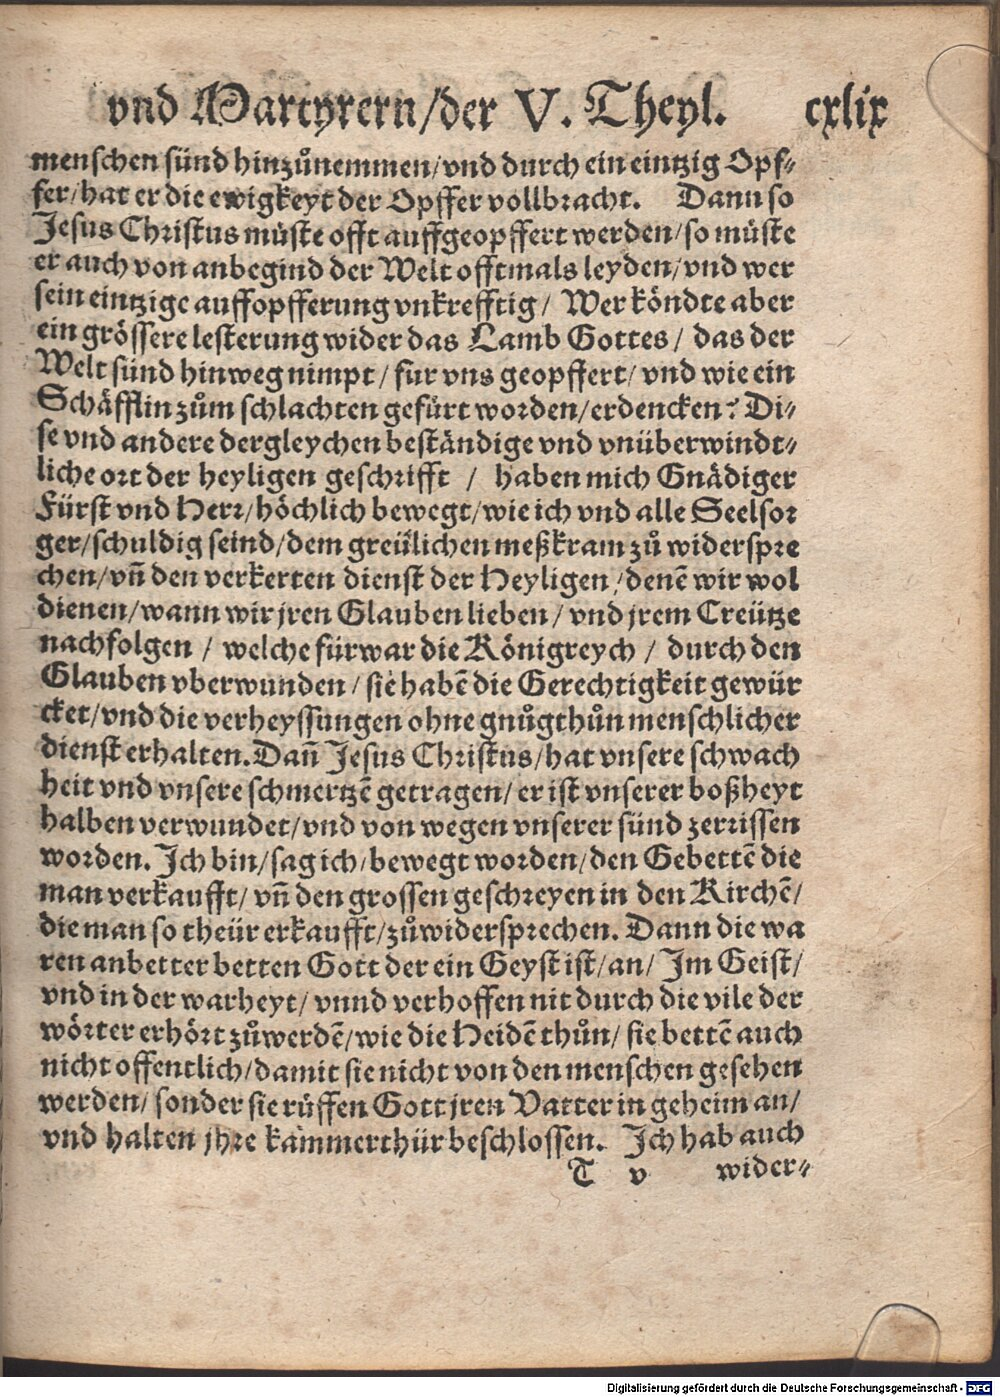 vnd Martyrern/der V. Theyl. cxlix
menschen sünd hinzůnemmen/vnd durch ein eintzig Opf⸗
fer/hat er die ewigkeyt der Opffer vollbracht. Dann so
Jesus Christus müste offt auffgeopffert werden/so müste
er auch von anbegind der Welt offtmals leyden/vnd wer
sein eintzige auffopfferung vnkrefftig/ Wer köndte aber
ein grössere lesterung wider das Lamb Gottes/ das der
Welt sünd hinweg nimpt/ für vns geopffert/ vnd wie ein
Schäfflin zům schlachten gefürt worden/erdencken? Di⸗
se vnd andere dergleychen beständige vnd vnüberwindt⸗
liche ort der heyligen geschrifft / haben mich Gnädiger
Fürst vnd Herr/höchlich bewegt/wie ich vnd alle Seelsor
ger/schuldig seind/dem greülichen meßkram zů widerspre
chen/vñ den verkerten dienst der Heyligen/denē wir wol
dienen/wann wir jren Glauben lieben/ vnd jrem Creütze
nachfolgen / welche fürwar die Königreych / durch den
Glauben vberwunden/ sie habē die Gerechtigkeit gewür
cket/vnd die verheyssungen ohne gnůgthůn menschlicher
dienst erhalten.Dañ Jesus Christus/hat vnsere schwach
heit vnd vnsere schmertzē getragen/ er ist vnserer boßheyt
halben verwundet/vnd von wegen vnserer sünd zerrissen
worden. Ich bin/sag ich/bewegt worden/den Gebettē die
man verkaufft/ vñ den grossen geschreyen in den Kirchē/
die man so theür erkaufft/zůwidersprechen. Dann die wa
ren anbetter betten Gott der ein Geyst ist/an/ Im Geist/
vnd in der warheyt/ vnnd verhoffen nit durch die vile der
wörter erhört zůwerdē/wie die Heidē thůn/ sie bettē auch
nicht offentlich/damit sie nicht von den menschen gesehen
werden/ sonder sie rüffen Gott jren Vatter in geheim an/
vnd halten jhre kammerthür beschlossen. Ich hab auch
T v wider⸗
Digitalisierung gefördert durch die Deutsche Forschungsgemeinschaft - DFG